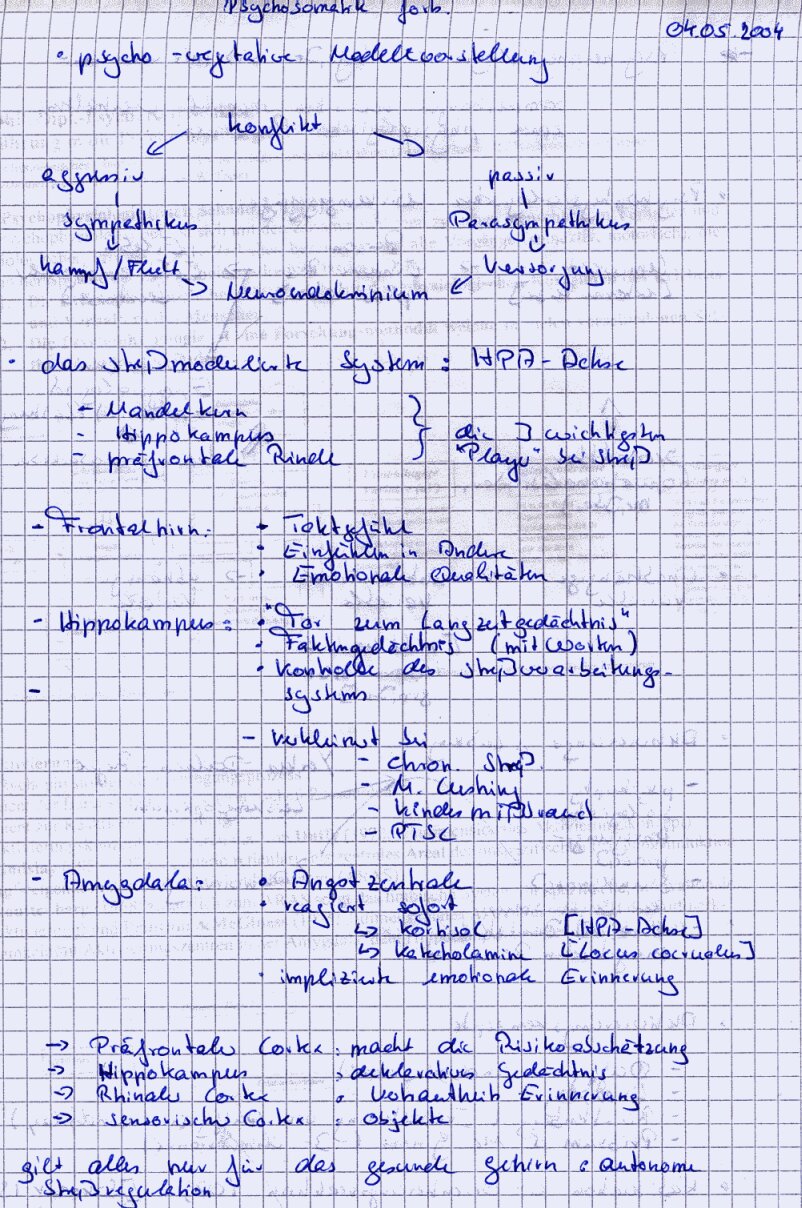 Psychosomatik forb.
04.05.2004
• psycho-vegetative Modellvorstellung
Konflikt
aggressiv passiv
Sympathikus Parasympathikus
Kampf/Flucht Versorgung
Neuroendokrinium
• das streßmodulierte System: HPA-Achse
- Mandelkern
- Hippokampus die 3 wichtigsten
- präfrontale Rinde "Player" bei Streß
- Frontalhirn: • Taktgefühl
• Einfühlen in Andere
• Emotionale Qualitäten
- Hippokampus: • "Tor zum Langzeitgedächtnis"
• Faktengedächtnis (mit Worten)
• Kontrolle des Streßverarbeitungs-
- systems
- verkleinert bei
- chron. Streß
- M. Cushing
- Kindesmißbrauch
- PTSC
- Amygdala: • Angstzentrale
• reagiert sofort
↳ Kortisol [HPA-Achse]
↳ Katecholamine [Locus coeruleus]
• implizite emotionale Erinnerung
→ Präfrontaler Cortex: macht die Risikoabschätzung
→ Hippokampus: deklaratives Gedächtnis
→ Rhinaler Cortex: Erinnerung
→ sensorischer Cortex: Objekte
gilt alles nur für das gesunde Gehirn: autonome
Streßregulation